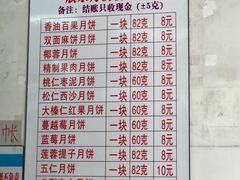 备注：结账只收现金（±5克）
香油百果月饼 一块 82克 8元
双面麻饼月饼 一块 82克 8元
椰蓉月饼 一块 82克 8元
精制果肉月饼 一块 82克 8元
桃仁枣泥月饼 一块 82克 8元
松仁西沙月饼 一块 82克 8元
大榛仁红果月饼 一块 82克 8元
蔓越莓月饼 一块 82克 8元
蓝莓月饼 一块 82克 8元
莲蓉提子月饼 一块 82克 8元
五仁月饼 一块 82克 10元